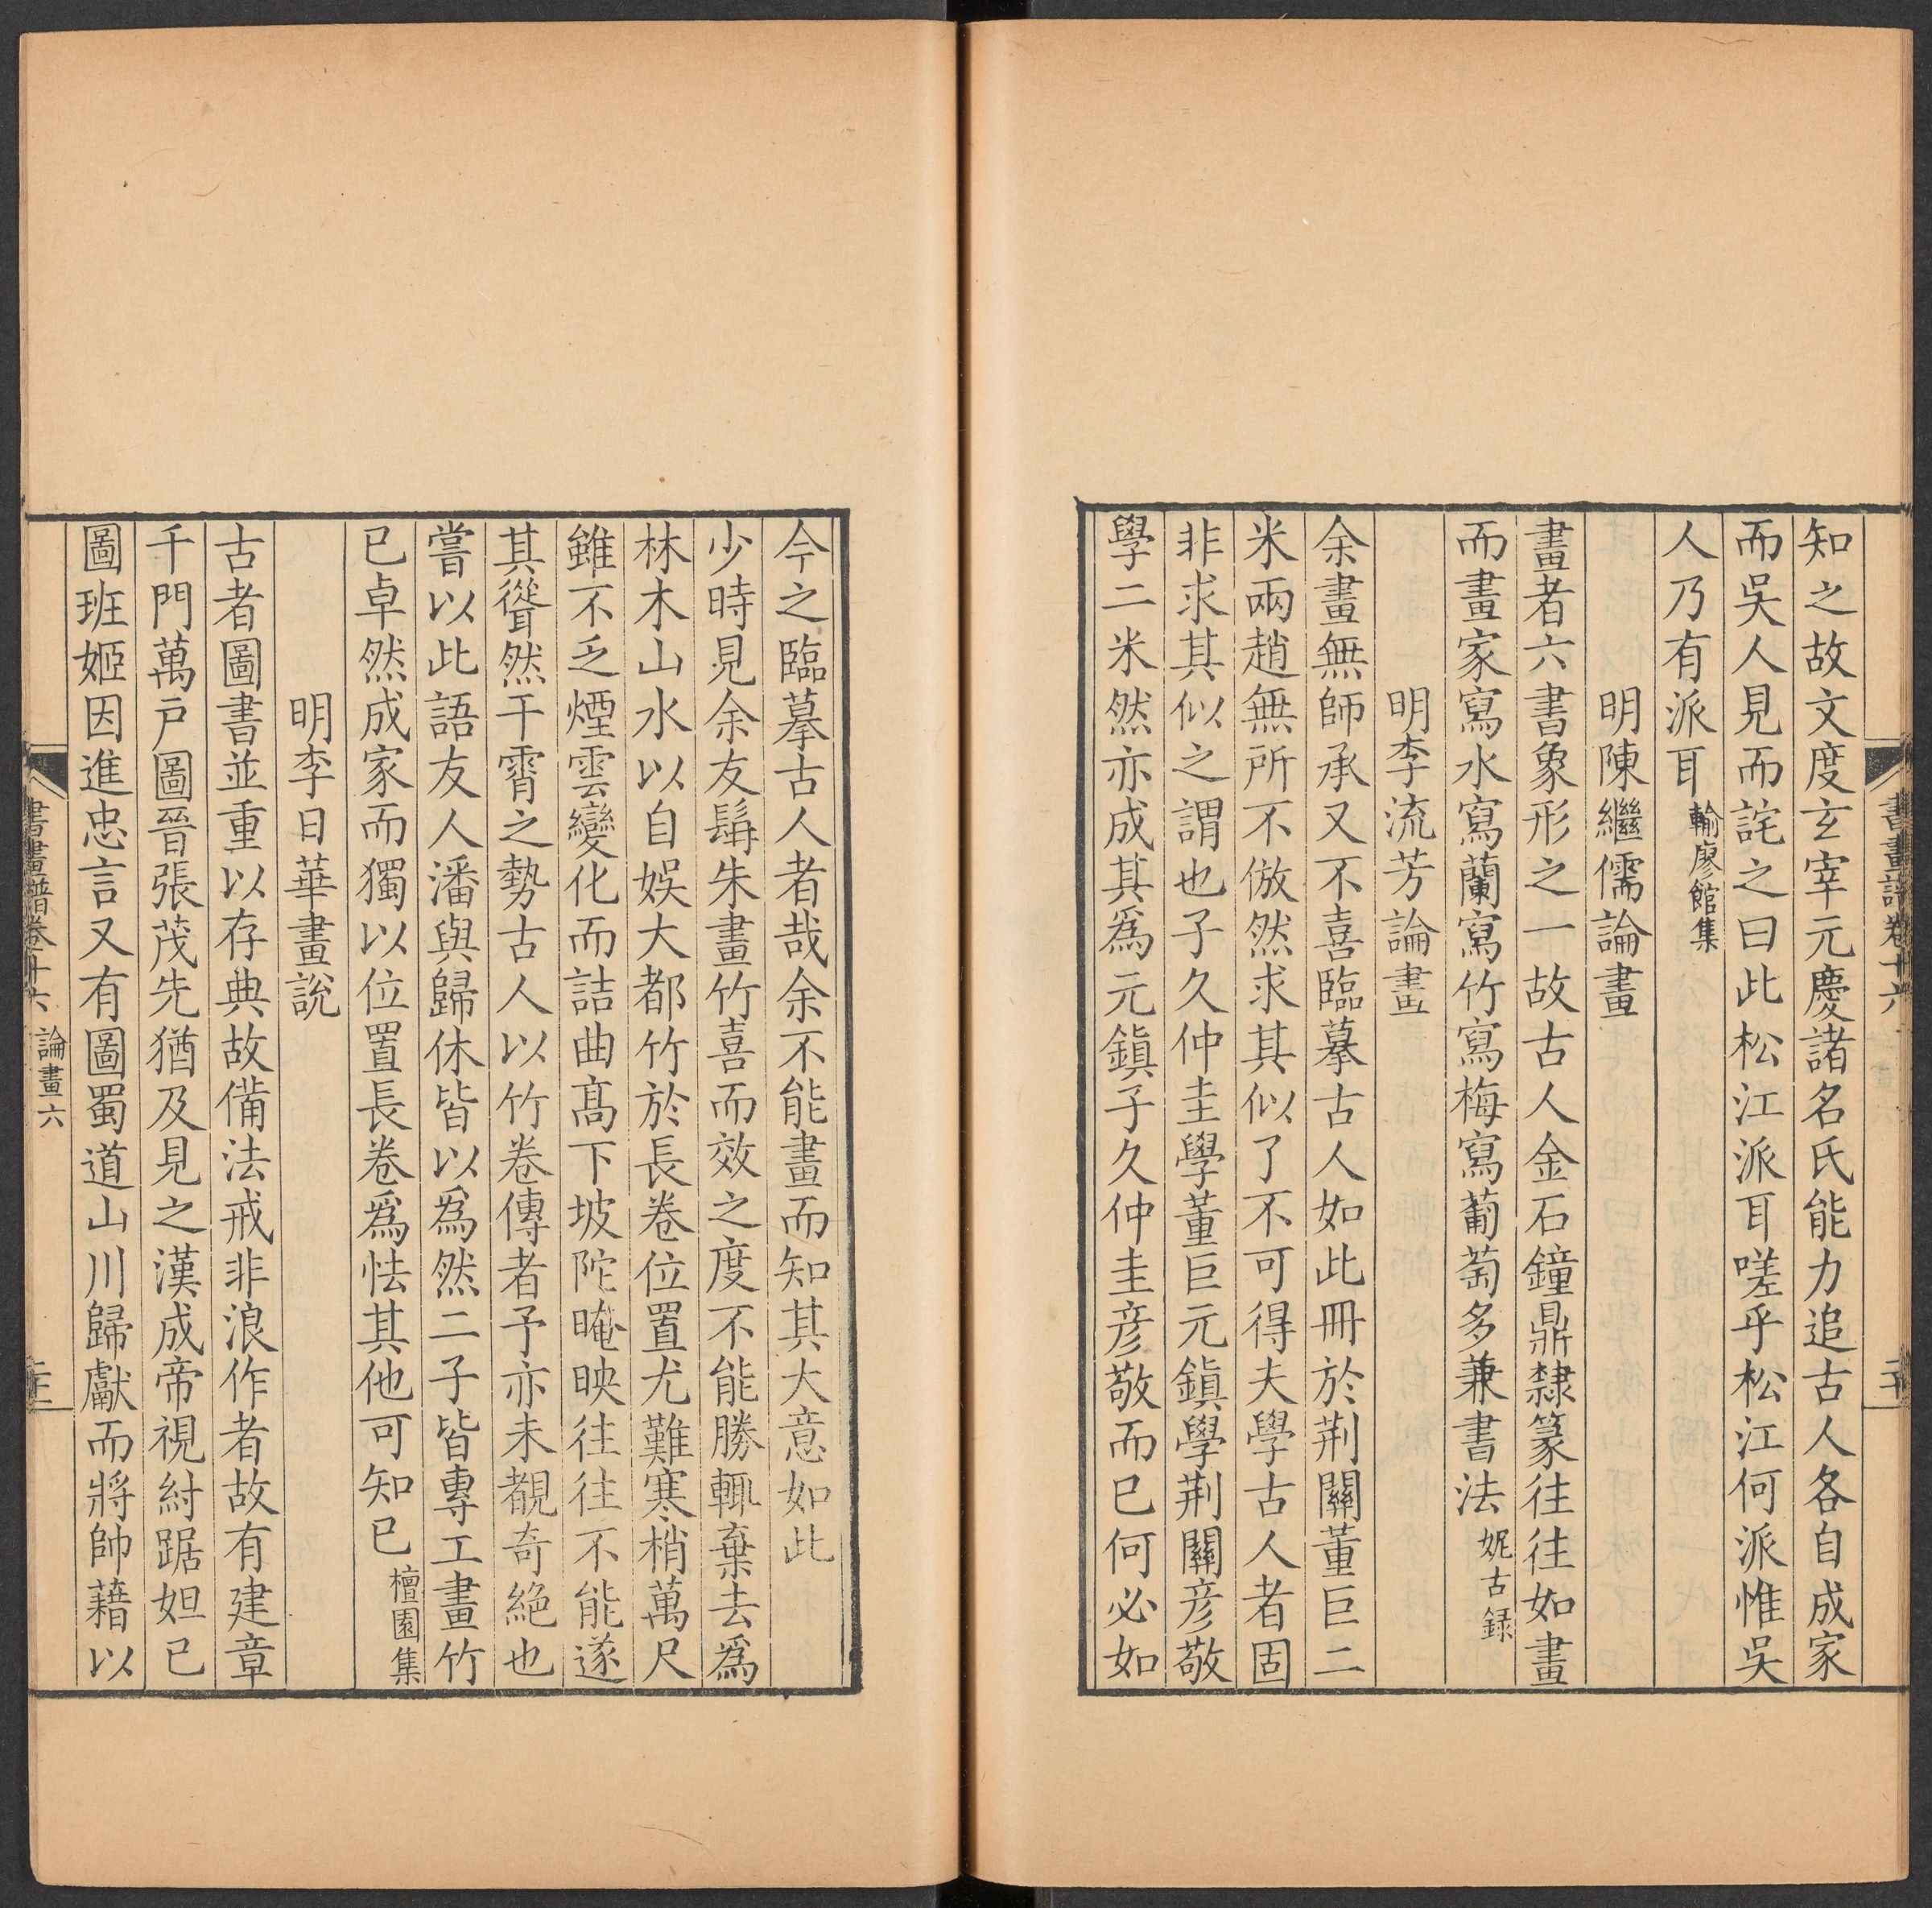 知之故文度玄宰元慶諸名氏能力追古人各自成家
而吳人見而詫之曰此松江派耳嗟乎松江何派惟吳
人乃有派耳輸廖館集
明陳繼儒論畫
畫者六書象形之一故古人金石鐘鼎隸篆往往如畫
而畫家寫水寫蘭寫竹寫梅寫葡萄多兼書法妮古録
明李流芳論畫
余畫無師承又不喜臨摹古人如此冊於荆關董巨二
米兩趙無所不倣然求其似了不可得夫學古人者固
非求其似之謂也子久仲圭學董巨元鎮學荆關彦敬
學二米然亦成其爲元鎮子久仲圭彦敬而已何必如
今之臨摹古人者哉余不能畫而知其大意如此
少時見余友髯朱畫竹喜而效之度不能勝輒棄去爲
林木山水以自娛大都竹於長卷位置尤難寒梢萬尺
雖不乏煙雲變化而詰曲髙下坡陀晻映往往不能遂
其聳然干霄之勢古人以竹卷傳者予亦未覩奇絶也
嘗以此語友人潘與歸休皆以爲然二子皆專工畫竹
已卓然成家而獨以位置長卷爲怯其他可知已檀園集
明李日華畫說
古者圖書並重以存典故備法戒非浪作者故有建章
千門萬戸圖晉張茂先猶及見之漢成帝視紂踞妲已
圖班姬因進忠言又有圖蜀道山川歸獻而將帥藉以
書畫譜卷十六 論畫六